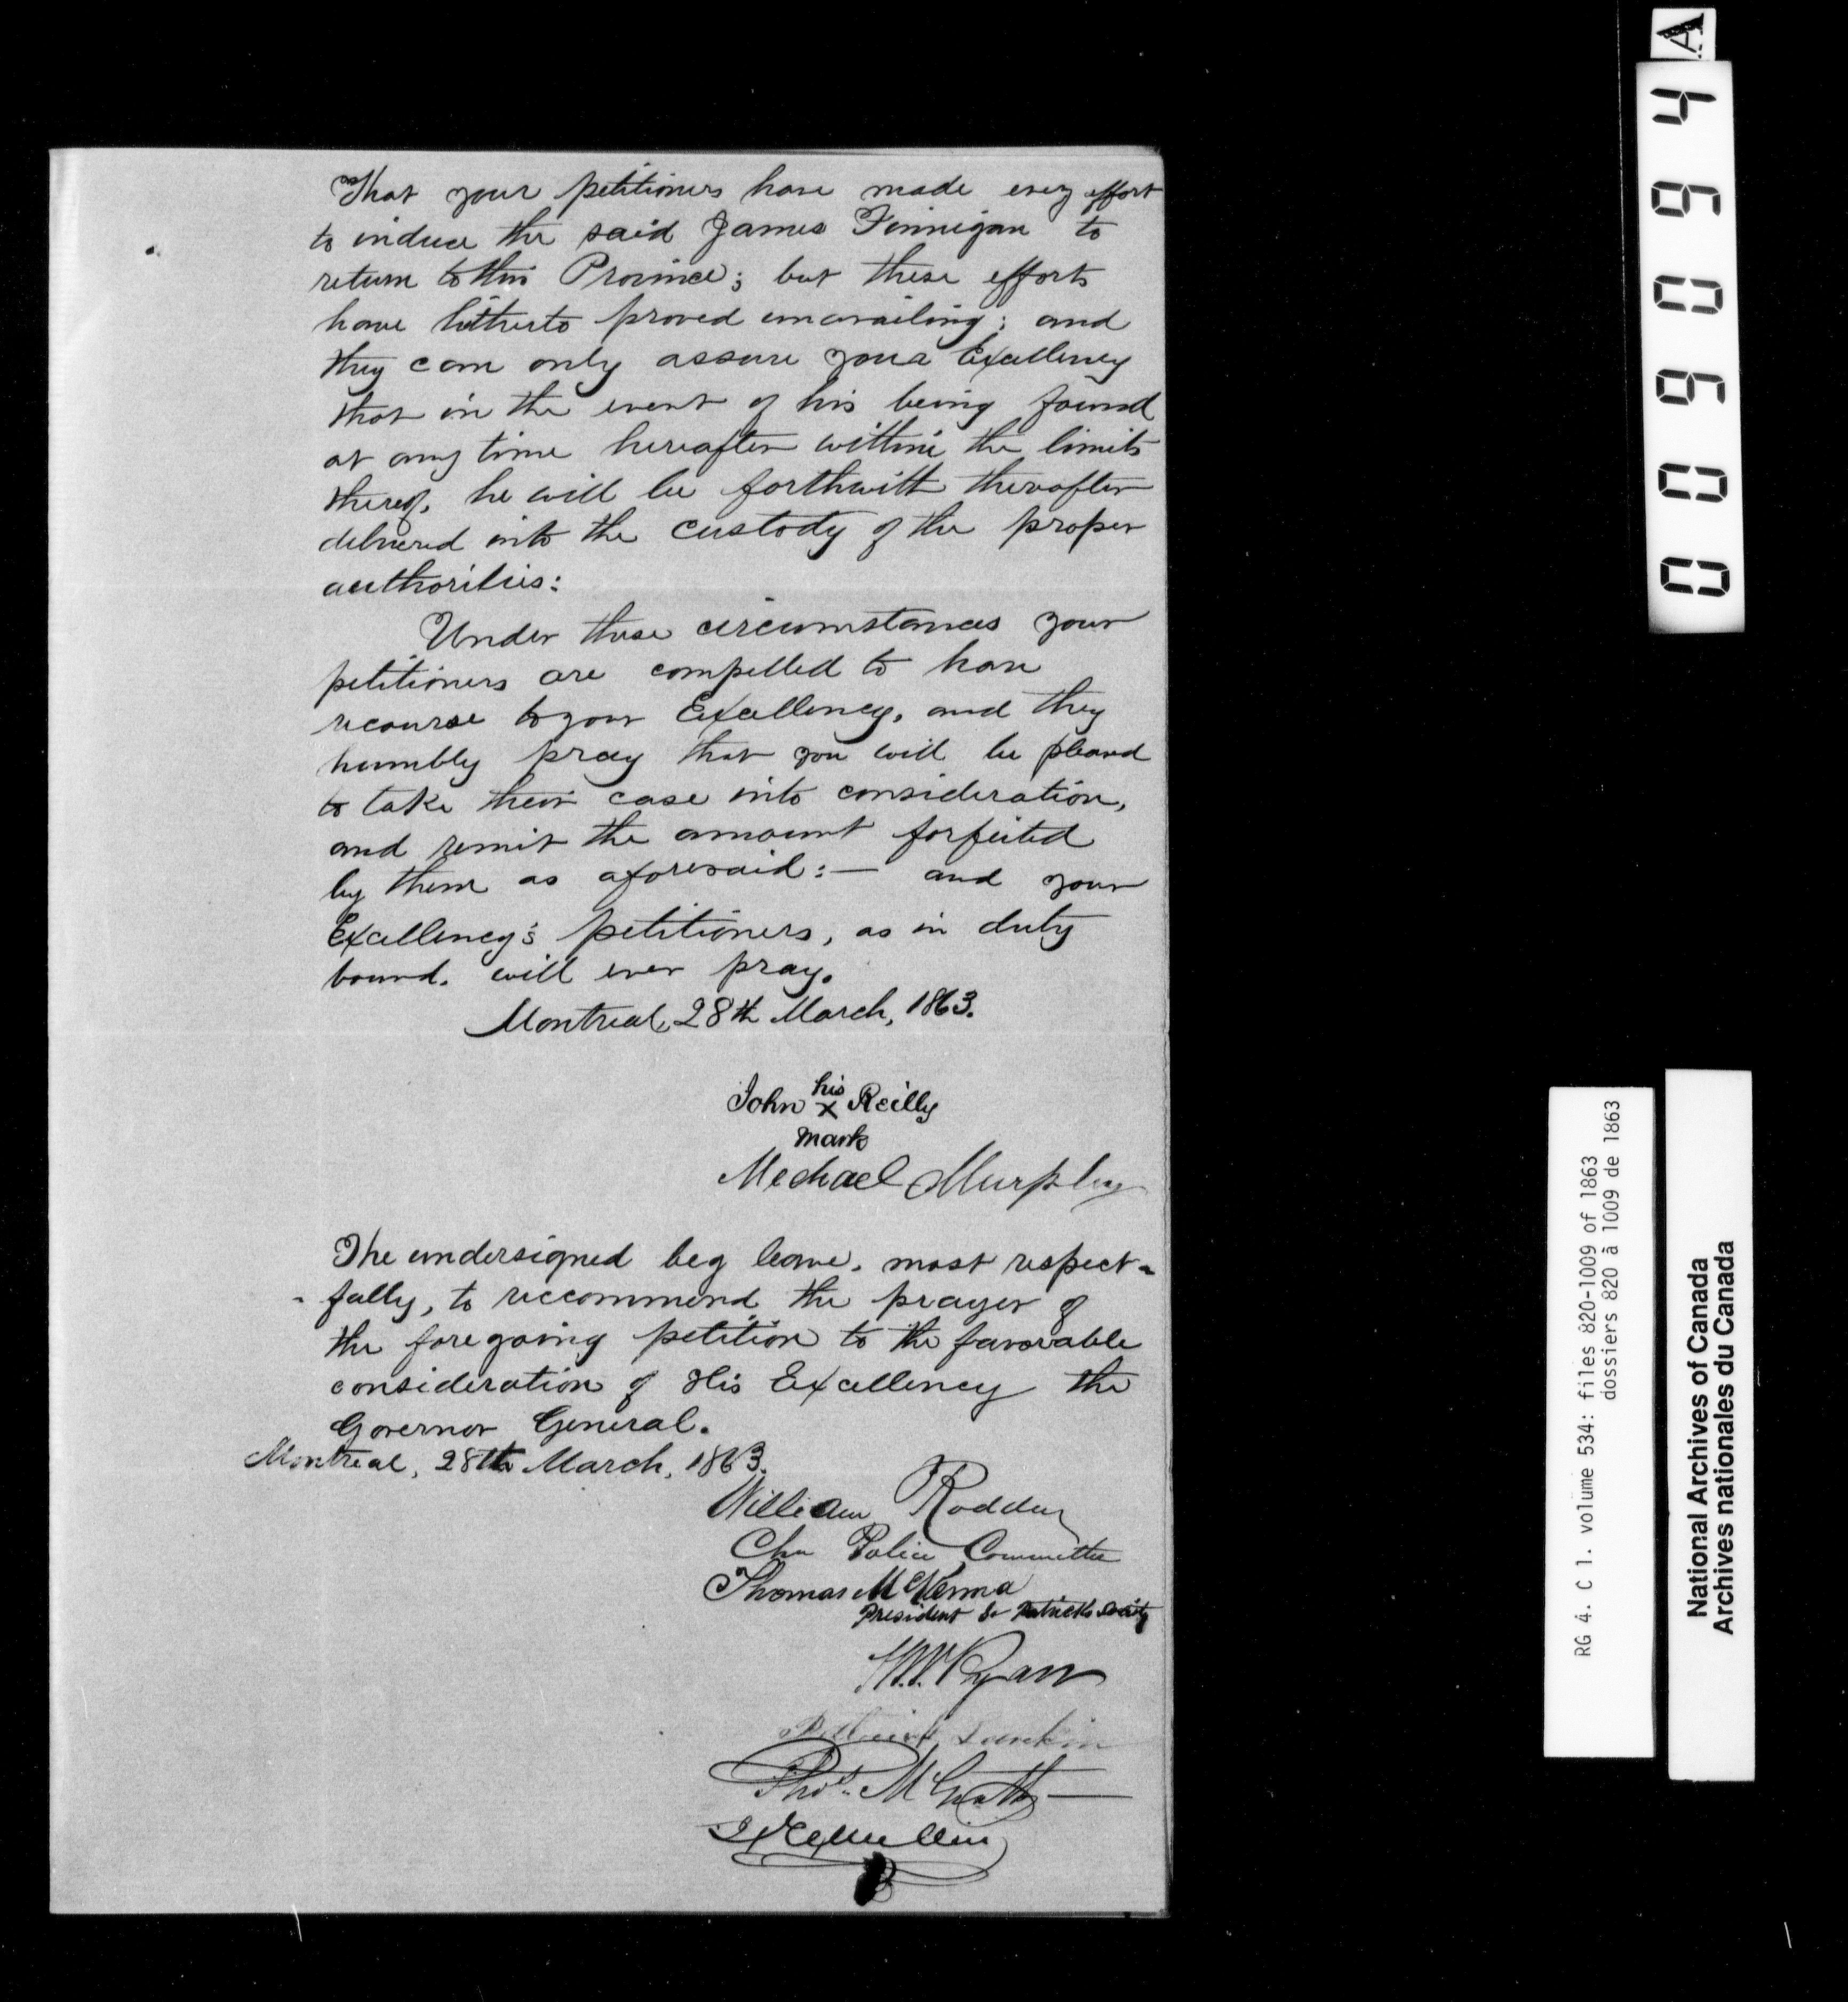 That your petitioners have made every effort
to induce the said James Finnigan to
return to this Province; but these efforts
have hitherto proved unavailing; and
they can only assure your Excellency
that in the event of his being found
at any time hereafter within the limits
thereof, he will be forthwith thereafter
delivered into the custody of the proper
authorities:
Under these circumstances your
petitioners are compelled to have
recourse to your Excellency, and they
humbly pray that you will be pleased
to take their case into consideration,
and remit the amount forfeited
by them as aforesaid:— and your
Excellency's petitioners, as in duty
bound, will ever pray.
Montreal, 28th March, 1863.
his
John x Reilly
mark
Michael Murphy
The undersigned beg leave, most respect-
-fully, to reccommend the prayer of
the foregoing petition to the favorable
consideration of His Excellency the
Governor General.
Montreal, 28th March, 1863.
William Rodden
Chn Police Committee
Thomas McKenna
President St Patricks Society
Ryan
Larkin
Thos. McGrath
A
009094
RG 4. C 1. volume 534: files 820-1009 of 1863
dossiers 820 à 1009 de 1863
National Archives of Canada
Archives nationales du Canada